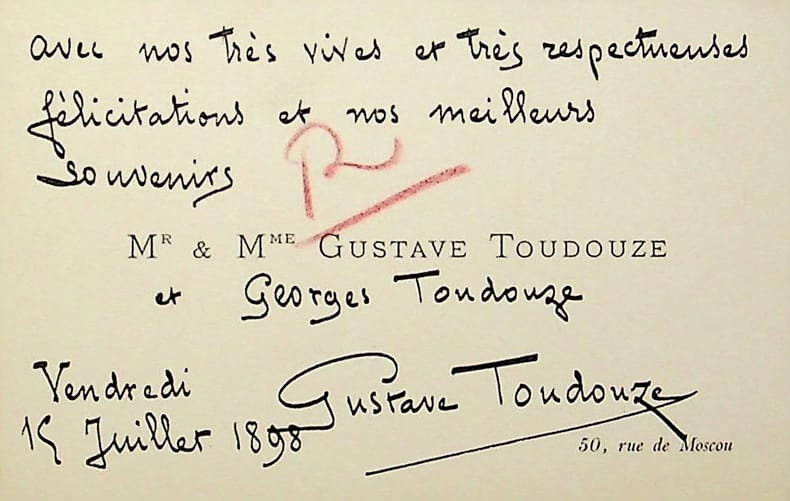 avec nos très vives et très respectueuses
félicitations et nos meilleurs
souvenirs
R
MR & MME GUSTAVE TOUDOUZE
et Georges Toudouze
Vendredi
15 Juillet 1898
Gustave Toudouze
50, rue de Moscou